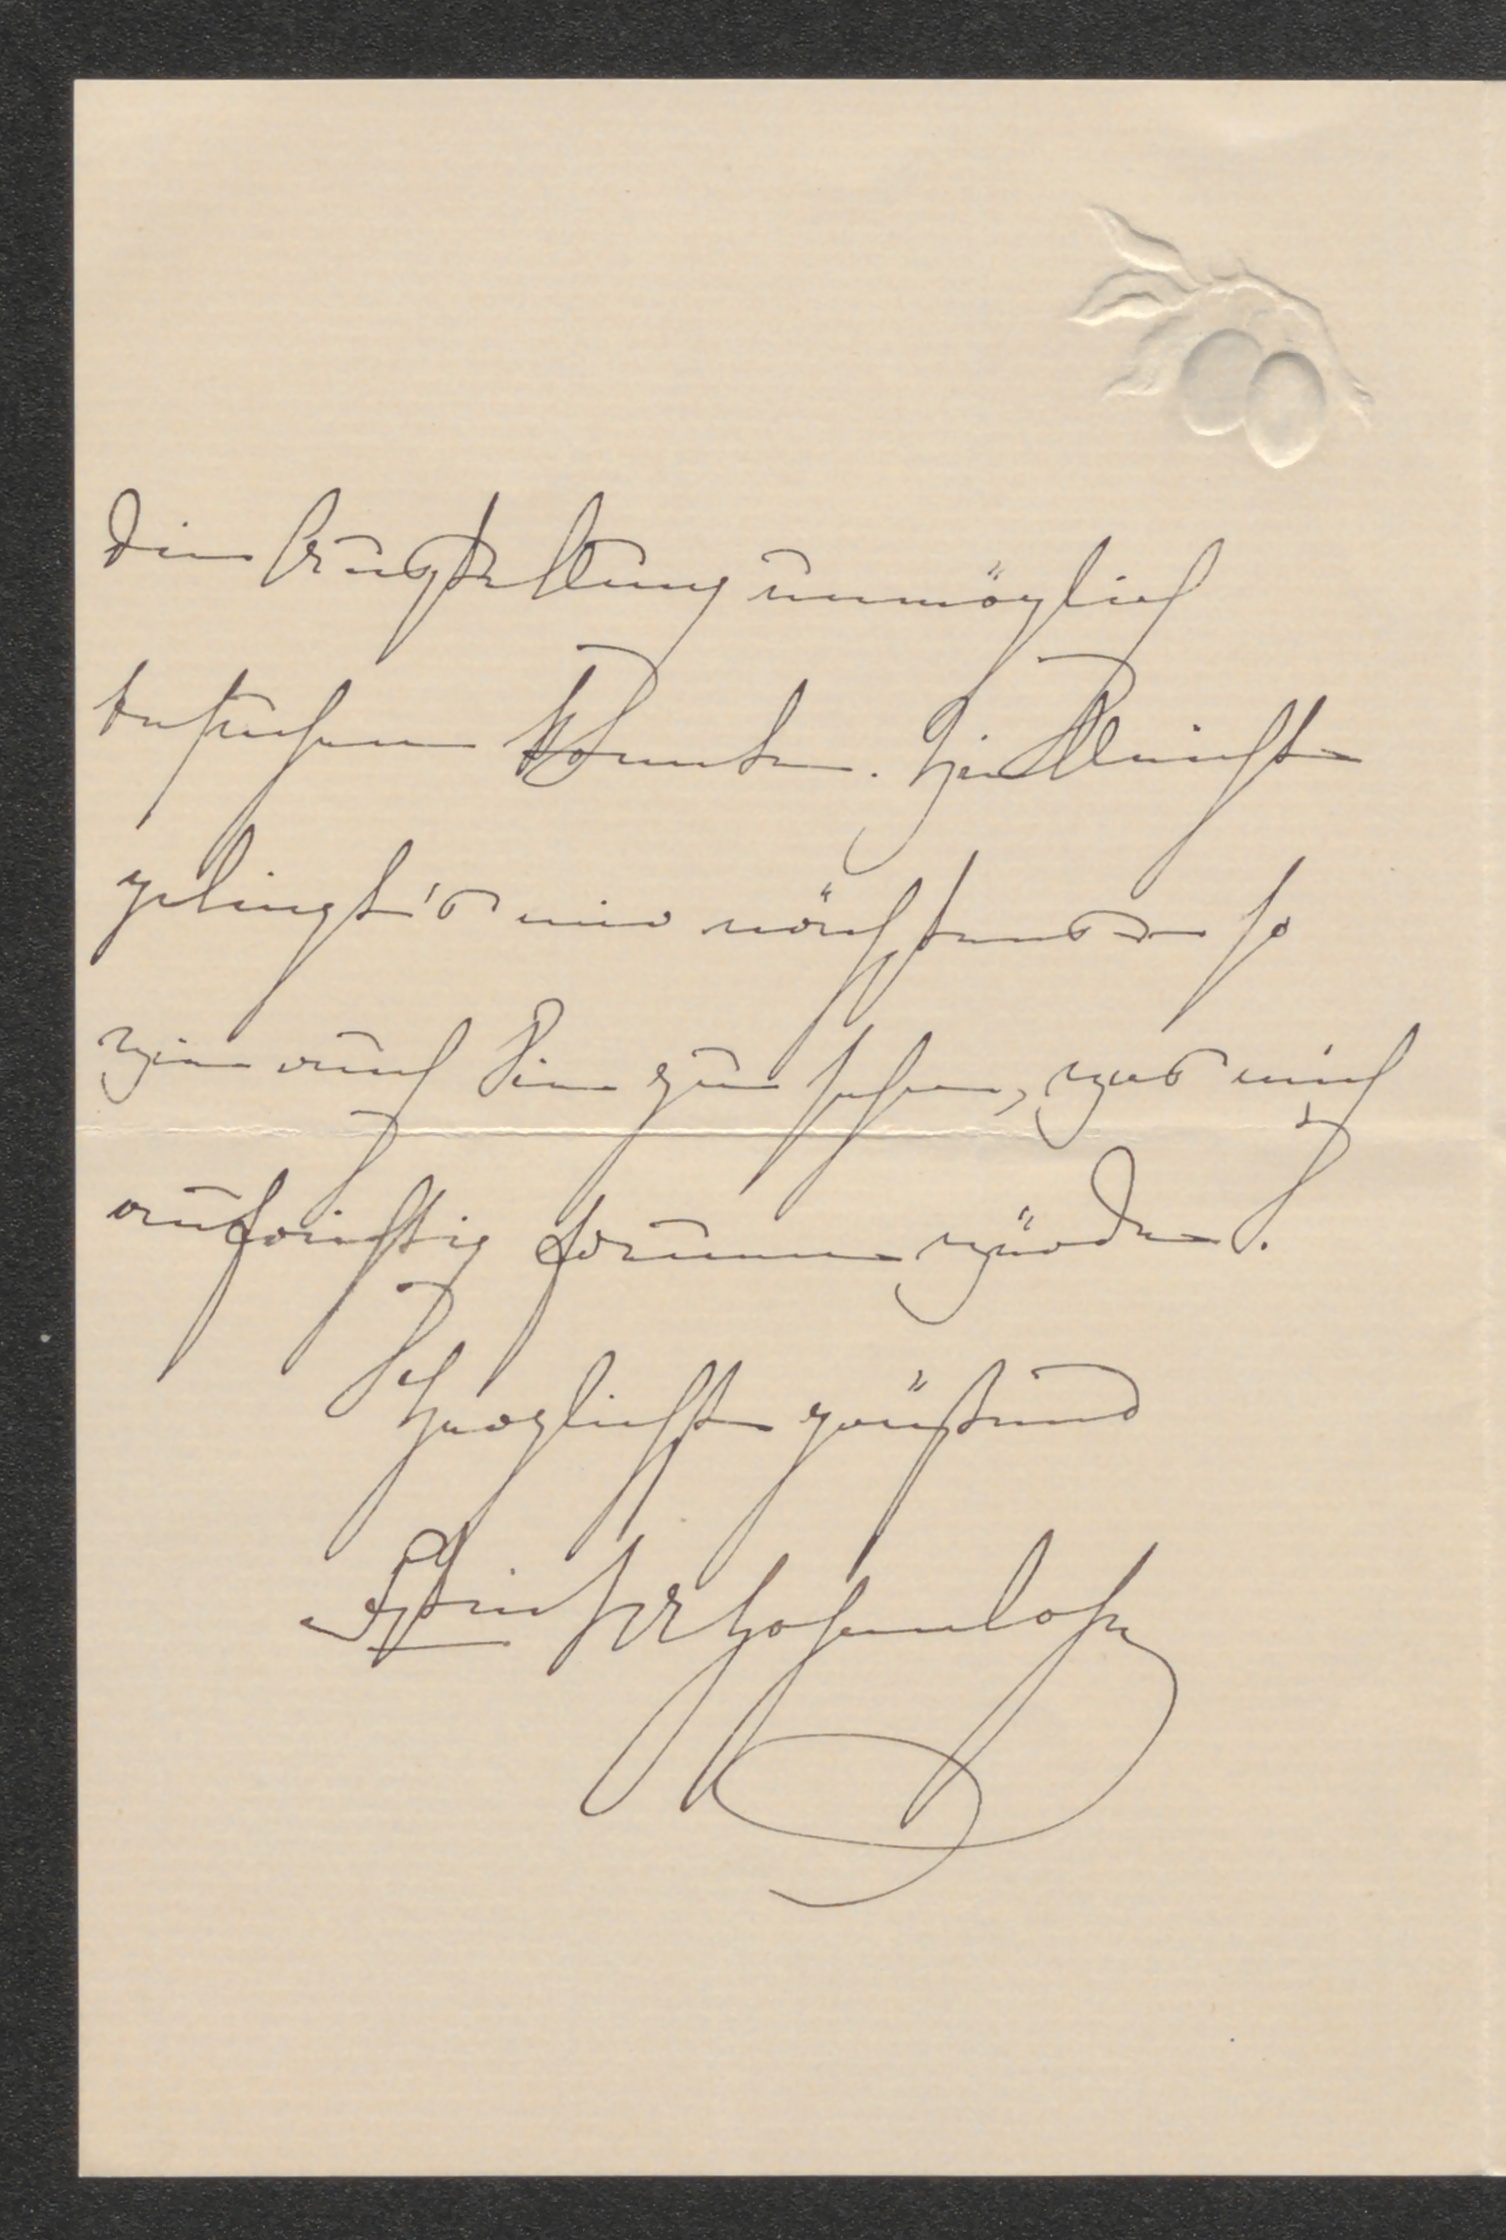 die Ausstellung unmöglich
besuchen konnte. Vielleicht
gelingt's mir nächstens so
wie auch Sie zu sehen, was mich
aufrichtig freuen würde.
Herzlichst grüßend
Hohenlohe